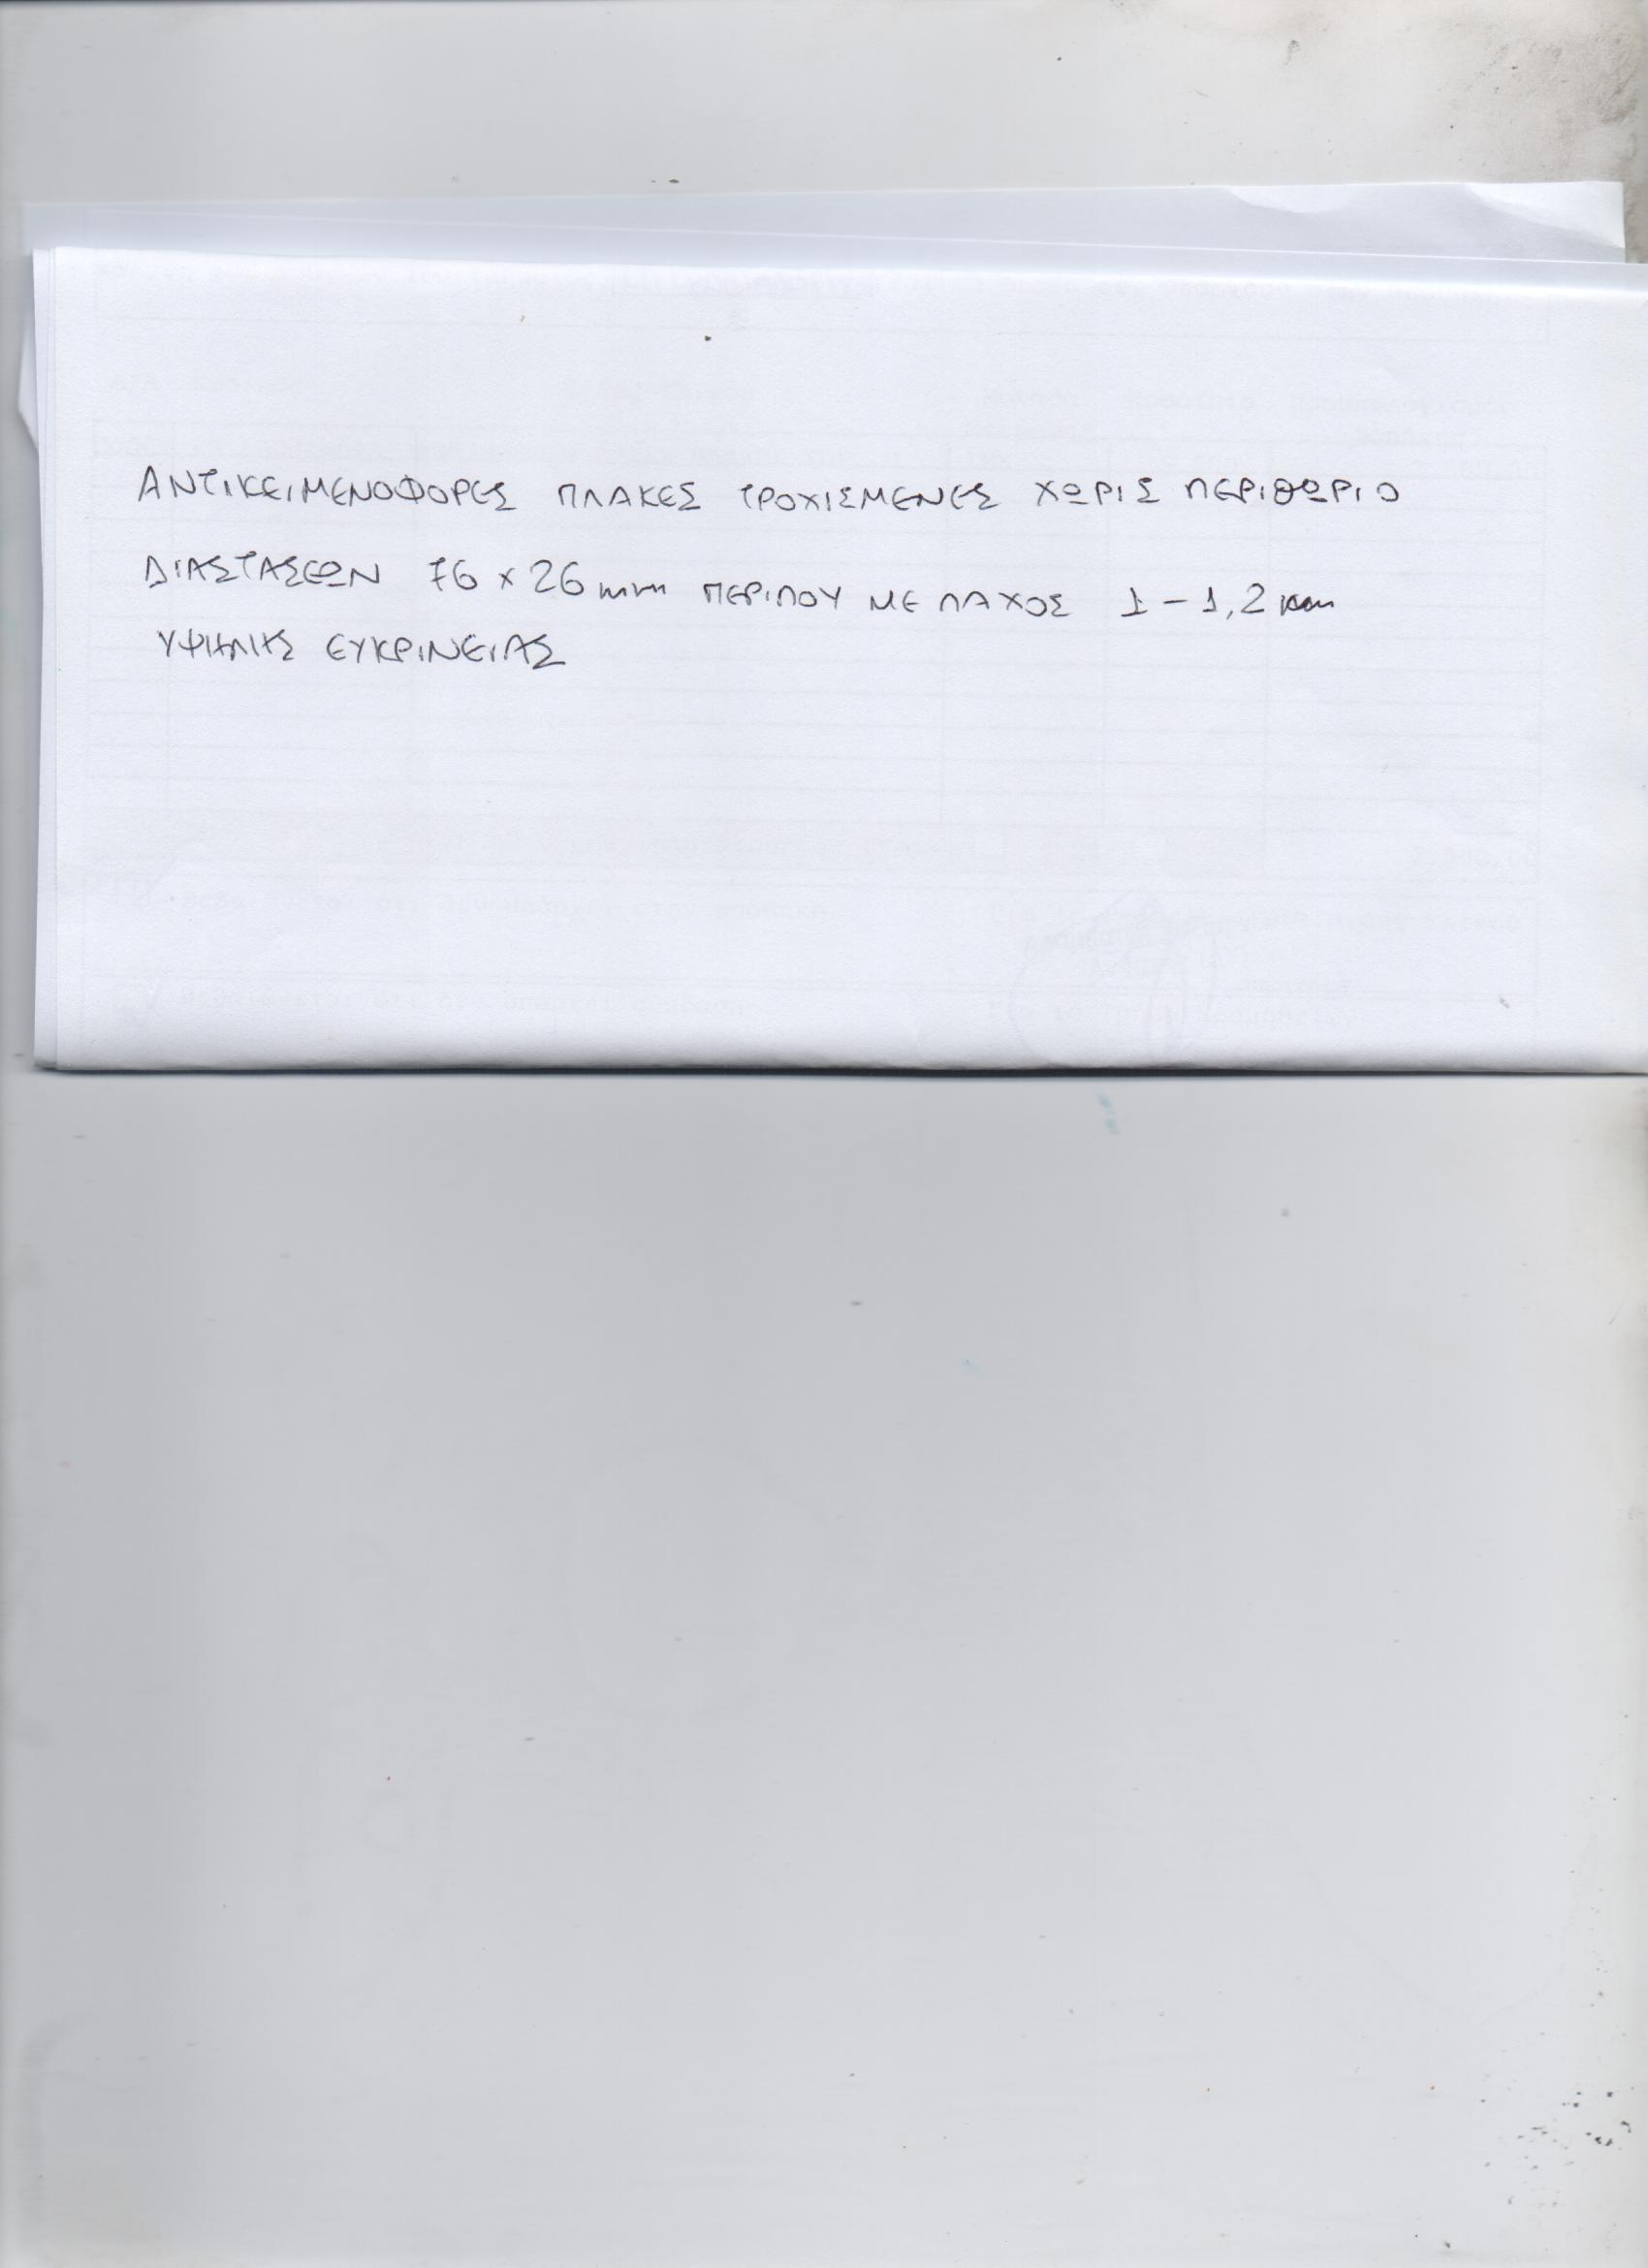 ΑΝΤΙΚΕΙΜΕΝΟΦΟΡΕΣ ΠΛΑΚΕΣ ΤΡΟΧΙΣΜΕΝΕΣ ΧΩΡΙΣ ΠΕΡΙΘΩΡΙΟ
ΔΙΑΣΤΑΣΕΩΝ 76 x 26 mm ΠΕΡΙΠΟΥ ΜΕ ΠΑΧΟΣ 1 - 1,2 mm
ΥΨΗΛΗΣ ΕΥΚΡΙΝΕΙΑΣ